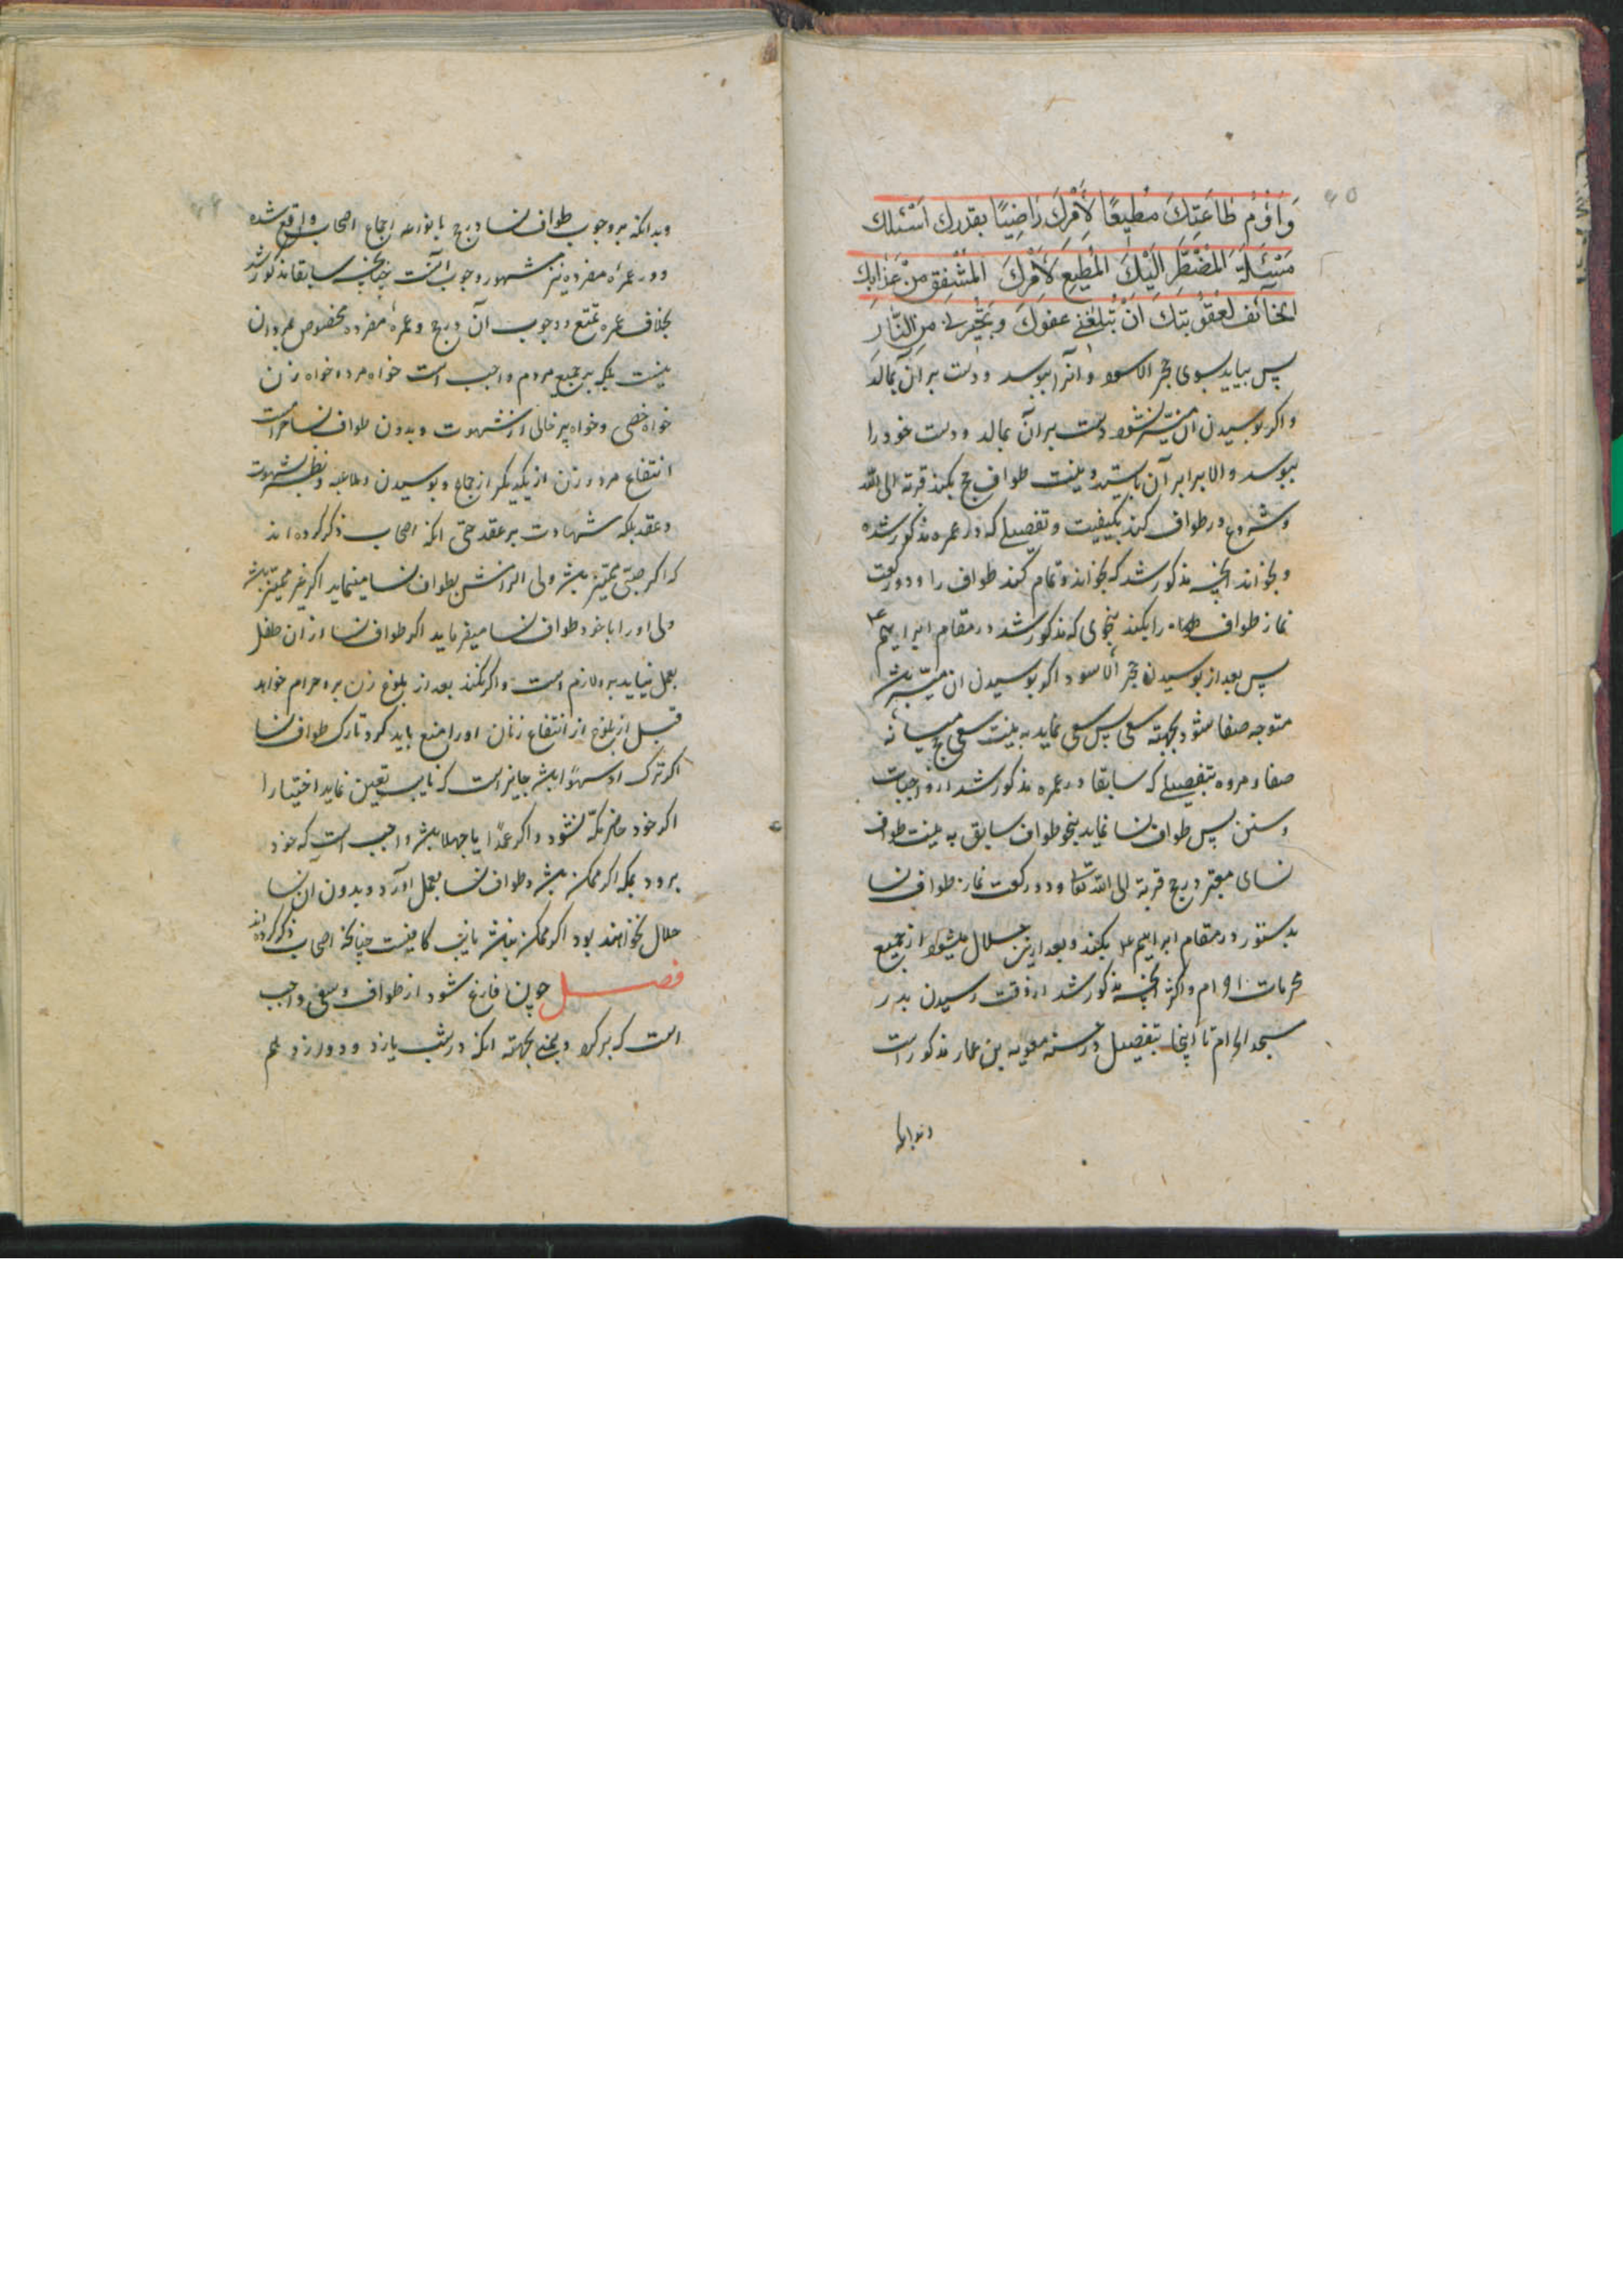 ۶۵
وَاَؤُمُّ طَاعَتِكَ مُطیعًا لِاَمْرِكَ رَاضِیًا بقدرك اَسْئَلُكَ
مَسْئَلَةَ الْمُضْطَرِّ اِلَیْكَ الْمُطیعِ لِاَمْرِكَ الْمُشْفِقِ مِنْ عَذَابِكَ
الخآئف لعقوبتك اَنْ تُبلغنی عفوك و تجیرنی من النّار
پس بیاید بسوی حجر الاسود و آنرا ببوسد و دست بر آن بمالد
و اکر بوسیدن آن میسّر نشود دست بر آن بمالد و دست خود را
ببوسد و الا برابر آن بایستد و بنیت طواف حج بکند قربة الی الله
و شروع در طواف کند بکیفیت و تفصیلی که در عمره مذکور شده
و بخواند آنچه مذکور شد که بخواند و تمام کند طواف را و دو رکعت
نماز طواف را بکند بنحوی که مذکور شد در مقام ابراهیم ع
پس بعد از بوسیدن حجر الاسود اکر بوسیدن ان میسّر باشد
متوجه صفا شود بجهته سعی پس سعی نماید به نیت سعی حج میانه
صفا و مروه بتفصیلی که سابقا در عمره مذکور شد از واجبات
و سنن پس طواف نسا نماید بنحو طواف سابق به نیت طواف
نسای معتبر در حج قربة الی الله تعا و دو رکعت نماز طواف نسا
بدستور در مقام ابراهیم ع بکند و بعد ازین حلال میشود از جمیع
محرمات احرام و اکثر آنچه مذکور شد از وقت رسیدن بدر
مسجد الحرام تا اینجا بتفصیل در حسنه معویه بن عمار مذکور است
و بدانکه
و بدانکه بر وجوب طواف نسا در حج بانواعه اجماع اصحاب واقع شده
و در عمره مفرده نیز مشهور وجوب آنست چنانچه سابقا مذکور شد
بخلاف عمره تمتع و وجوب آن در حج و عمره مفرده مخصوص بمردان
نیست بلکه بر جمیع مردم واجب است خواه مرد و خواه زن
خواه خصی و خواه پیر خالی از شهوت و بدون طواف نسا حرامست
انتفاع مرد و زن از یکدیکر از جماع و بوسیدن و ملاعبه و نظر بشهوت
و عقد بلکه شهادت بر عقد حتی انکه اصحاب ذکر کرده اند
که اکر صبی ممیّز باشد ولی الزامش بطواف نسا مینماید اکر غیر ممیّز باشد
ولی او را با خود طواف نسا میفرماید اکر طواف نسا از ان طفل
بعمل نیاید بر او لازم است و اکر نکند بعد از بلوغ زن بر او حرام خواهد
قبل از بلوغ از انتفاع زنان او را منع باید کرد و تارک طواف نسا
اکر ترک او سهوًا باشد جایز است که نایب تعیین نماید اختیارا
اکر خود حاضر مکّه نشود و اکر عمدًا یا جهلا باشد واجب است که خود
برود بمکه اکر ممکن باشد و طواف نسا بعمل آورد و بدون آن نسا
حلال نخواهند بود اکر ممکن نباشد نایب کافیست چنانکه اصحاب ذکر کرده اند
فصل چون فارغ شود از طواف و سعی واجب
است که برکردد بمنی بجهته انکه در شب یازدهم و دوازدهم